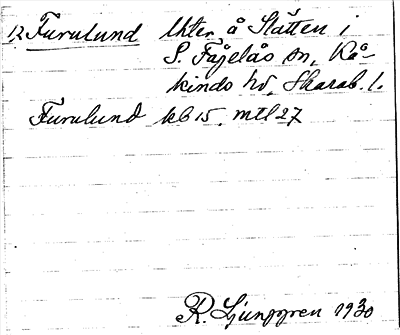 12 Furulund Uter å Slätten i
S. Fågelås sn, Kå-
kinds hd, Skarab. l.
Furulund kb 15, mtl 27
R. Ljunggren 1930